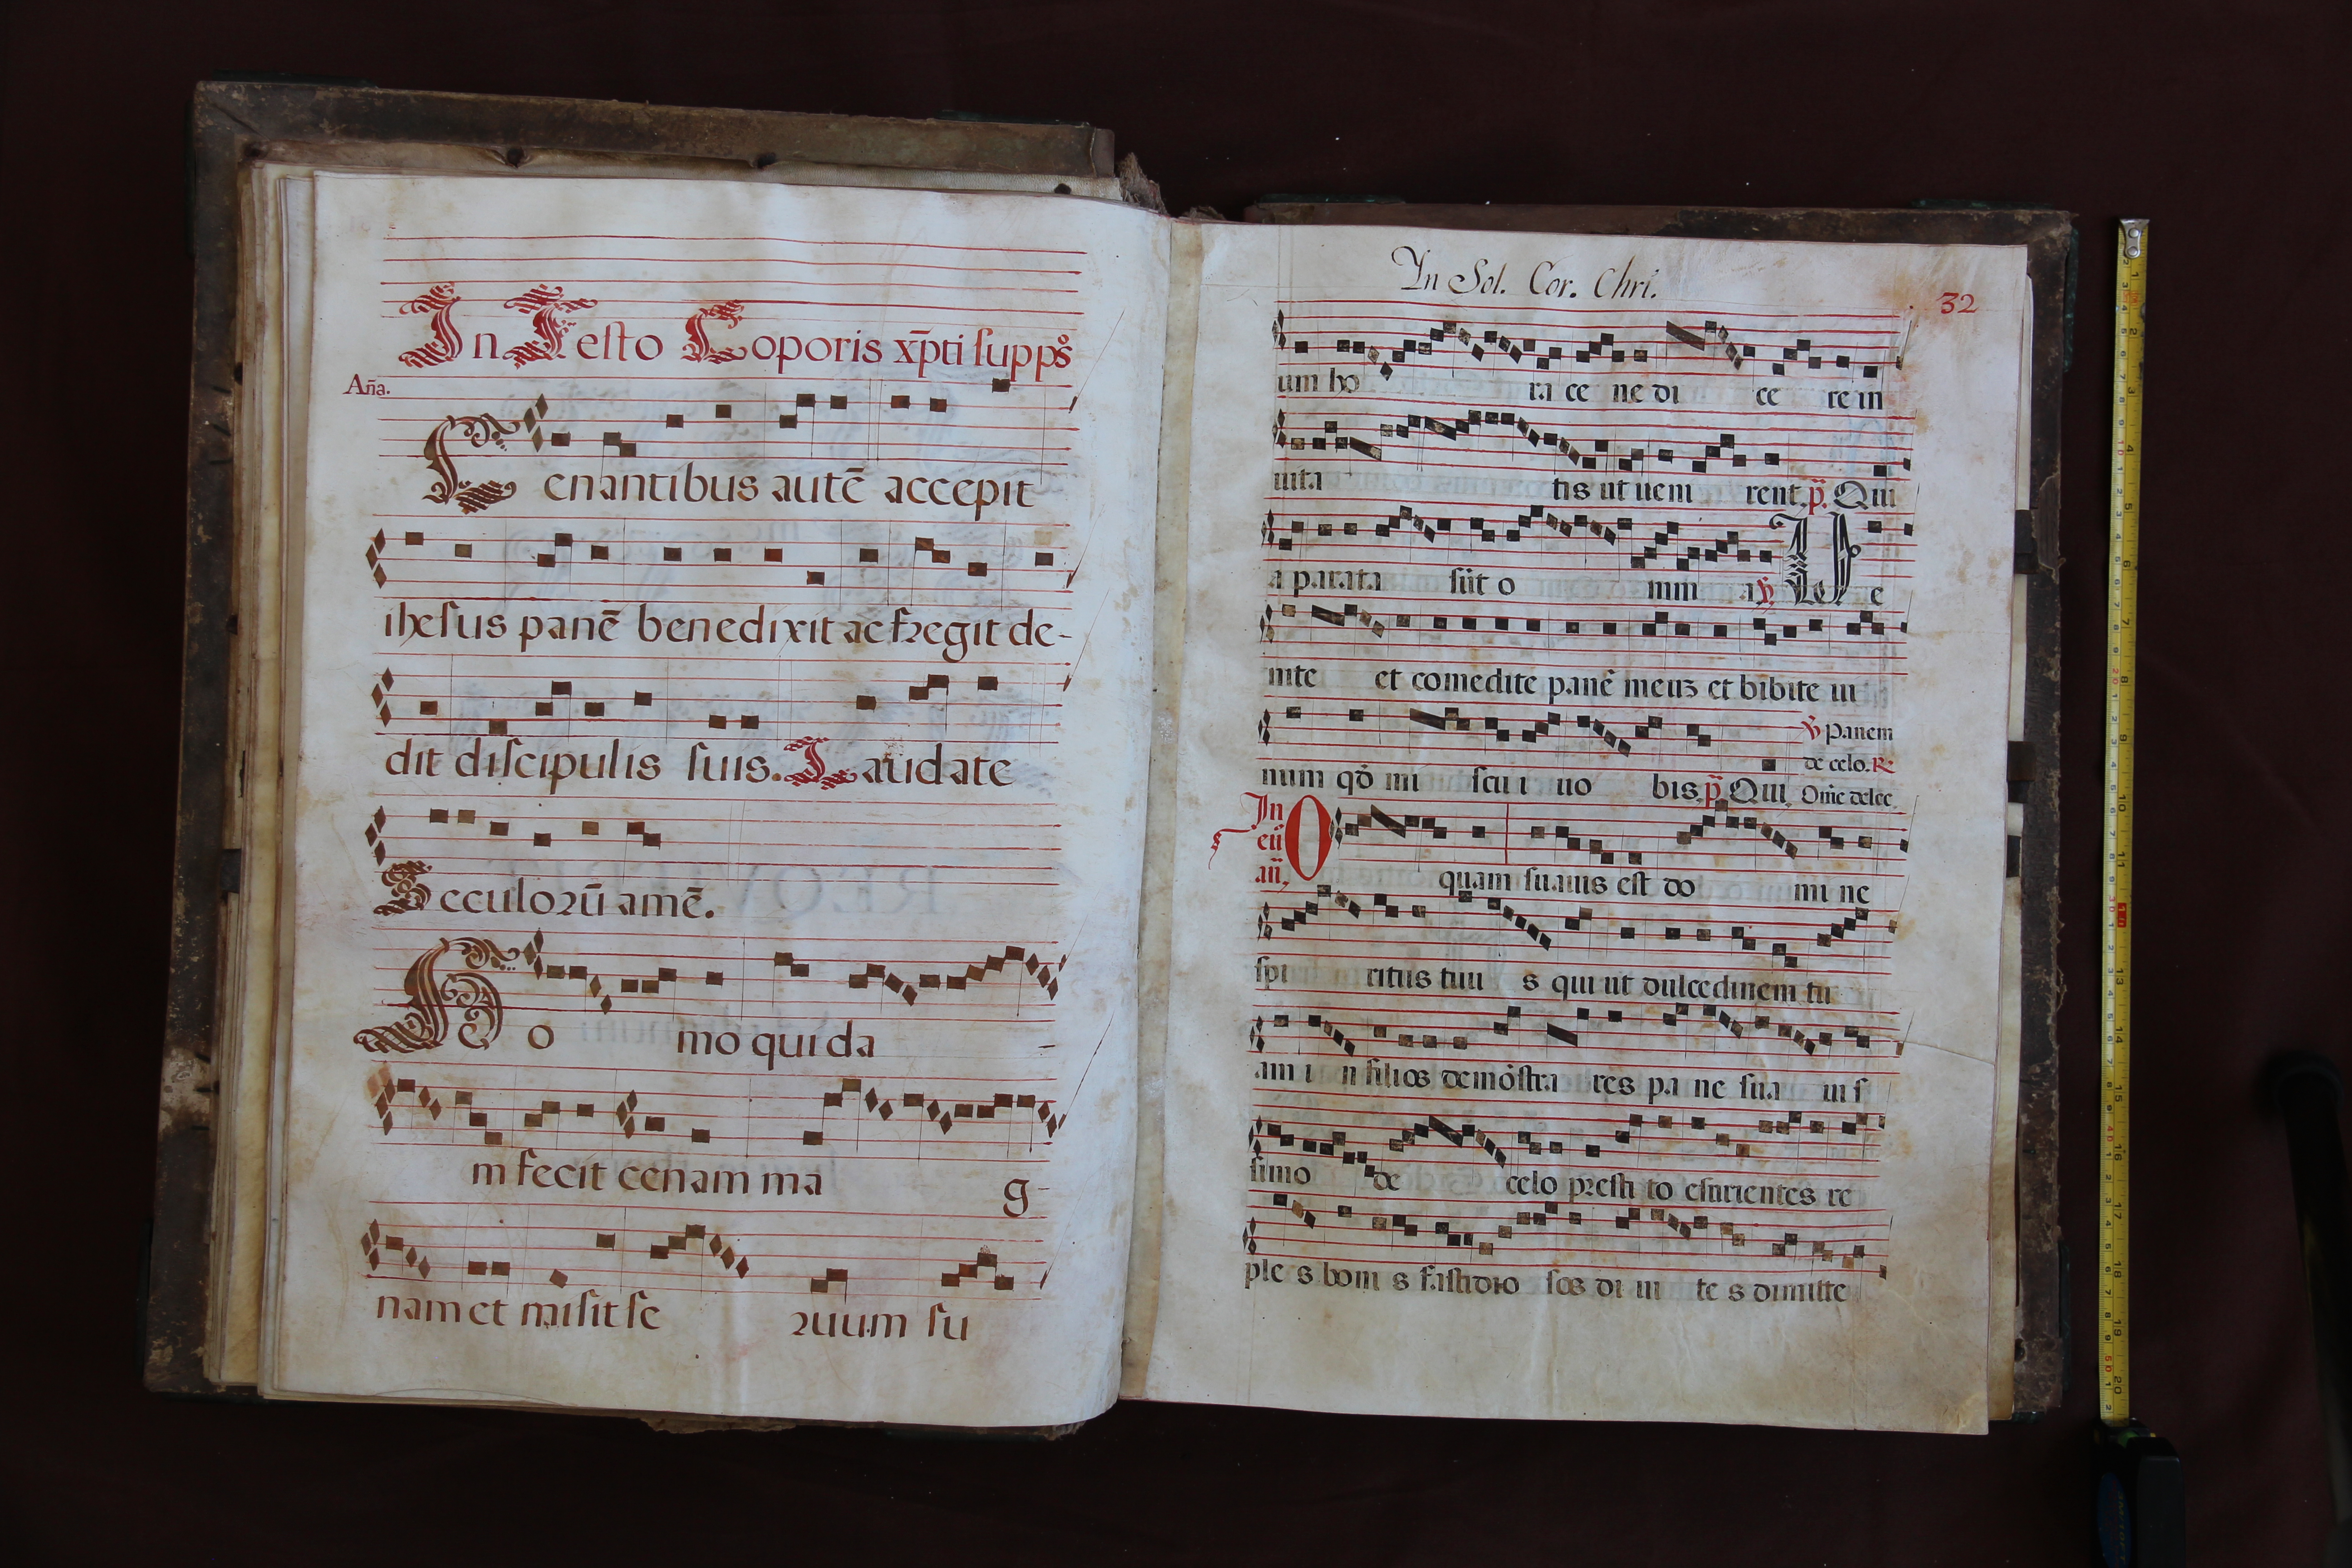 In Festo Coporis xp̄ti supp̄s
Aña.
Cenantibus autē accepit
ihesus panē benedixit ac fregit de-
dit discipulis suis. Laudate
Seculorū amē.
Ho mo qui da
m fecit cenam ma g
nam et misit se ruum su
In Sol. Cor. Chri.
32
um ho ra ce ne di ce re in
uita tis ut ueni rent. p̄. Qui
a parata sūt o mni a ℣. Ve
nite et comedite panē meuʒ et bibite ui
num qđ mi scu i uo bis. p̄ Qui
℣ Panem
de celo. ℞
Omē delec
In
eū
añ,
O quam suauis est do mi ne
spi ritus tuu s qui ut dulcedinem tu
am i n filios demōstra res pa ne sua ui s
simo de celo presti to esurientes re
ple s boni s fastidio sos di ui te s dimitte